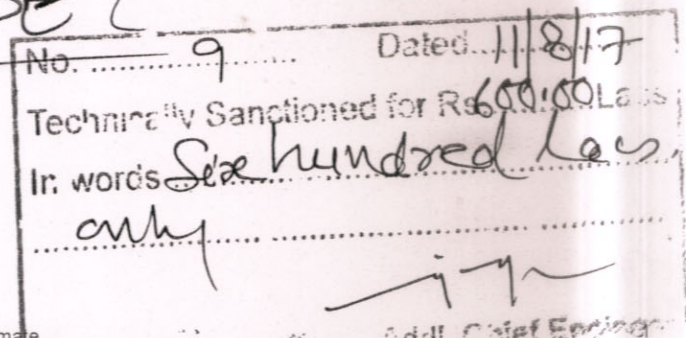 No. 9 Dated 11/8/17
Technically Sanctioned for Rs 600.00 Lacs
In words Six hundred Lacs.
only
Addl. Chief Engineer